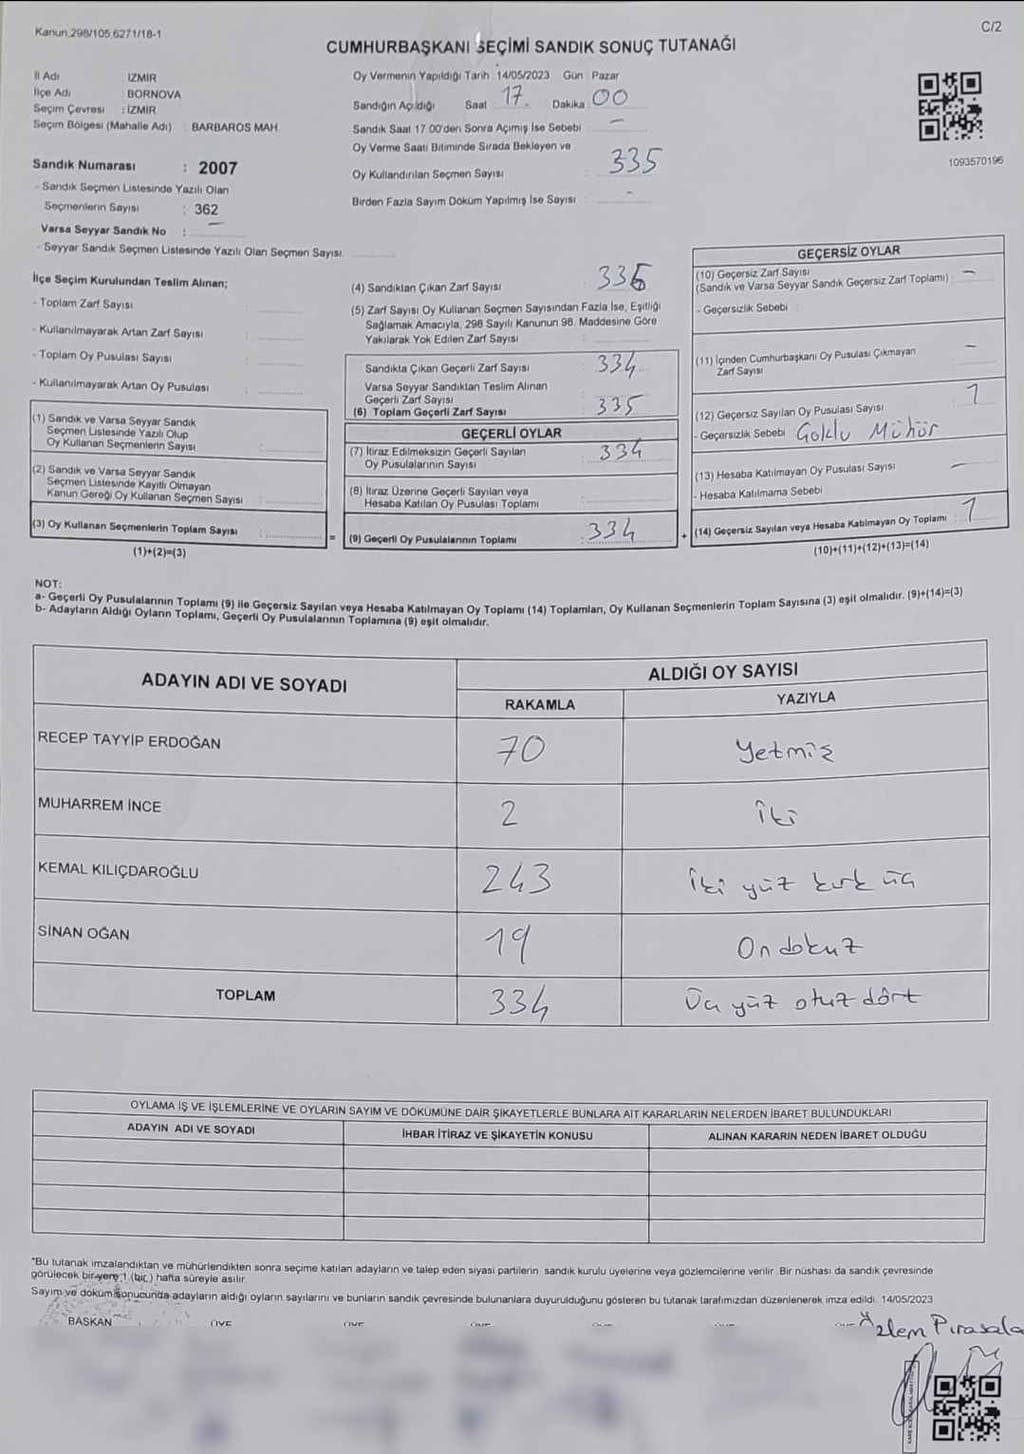 Kanun 298/105,6271/18-1
C/2
CUMHURBAŞKANI SEÇİMİ SANDIK SONUÇ TUTANAĞI
İl Adı : İZMİR
İlçe Adı : BORNOVA
Seçim Çevresi : İZMİR
Seçim Bölgesi (Mahalle Adı) : BARBAROS MAH.
Oy Vermenin Yapıldığı Tarih : 14/05/2023 Gün : Pazar
Sandığın Açıldığı Saat : 17 Dakika : 00
Sandık Saat 17:00'den Sonra Açımış İse Sebebi : -
Oy Verme Saati Bitiminde Sırada Bekleyen ve
Oy Kullandırılan Seçmen Sayısı : 335
Birden Fazla Sayım Döküm Yapılmış İse Sayısı : -
1093570196
Sandık Numarası : 2007
- Sandık Seçmen Listesinde Yazılı Olan
Seçmenlerin Sayısı : 362
Varsa Seyyar Sandık No : -
- Seyyar Sandık Seçmen Listesinde Yazılı Olan Seçmen Sayısı:
İlçe Seçim Kurulundan Teslim Alınan;
- Toplam Zarf Sayısı :
- Kullanılmayarak Artan Zarf Sayısı :
- Toplam Oy Pusulası Sayısı :
- Kullanılmayarak Artan Oy Pusulası :
(1) Sandık ve Varsa Seyyar Sandık
Seçmen Listesinde Yazılı Olup
Oy Kullanan Seçmenlerin Sayısı :
(2) Sandık ve Varsa Seyyar Sandık
Seçmen Listesinde Kayıtlı Olmayan
Kanun Gereği Oy Kullanan Seçmen Sayısı :
(3) Oy Kullanan Seçmenlerin Toplam Sayısı :
(1)+(2)=(3)
(4) Sandıktan Çıkan Zarf Sayısı :
(5) Zarf Sayısı Oy Kullanan Seçmen Sayısından Fazla İse, Eşitliği
Sağlamak Amacıyla, 298 Sayılı Kanunun 98. Maddesine Göre
Yakılarak Yok Edilen Zarf Sayısı :
Sandıkta Çıkan Geçerli Zarf Sayısı : 334
Varsa Seyyar Sandıktan Teslim Alınan
Geçerli Zarf Sayısı
(6) Toplam Geçerli Zarf Sayısı : 335
GEÇERLİ OYLAR
(7) İtiraz Edilmeksizin Geçerli Sayılan
Oy Pusulalarının Sayısı : 334
(8) İtiraz Üzerine Geçerli Sayılan veya
Hesaba Katılan Oy Pusulası Toplamı :
= (9) Geçerli Oy Pusulalarının Toplamı : 334
GEÇERSİZ OYLAR
(10) Geçersiz Zarf Sayısı
(Sandık ve Varsa Seyyar Sandık Geçersiz Zarf Toplamı) : -
- Geçersizlik Sebebi :
(11) İçinden Cumhurbaşkanı Oy Pusulası Çıkmayan
Zarf Sayısı : -
(12) Geçersiz Sayılan Oy Pusulası Sayısı : 1
- Geçersizlik Sebebi : Çoklu Mühür
(13) Hesaba Katılmayan Oy Pusulası Sayısı : -
- Hesaba Katılmama Sebebi :
+ (14) Geçersiz Sayılan veya Hesaba Katılmayan Oy Toplamı : 1
(10)+(11)+(12)+(13)=(14)
NOT:
a- Geçerli Oy Pusulalarının Toplamı (9) ile Geçersiz Sayılan veya Hesaba Katılmayan Oy Toplamı (14) Toplamları, Oy Kullanan Seçmenlerin Toplam Sayısına (3) eşit olmalıdır. (9)+(14)=(3)
b- Adayların Aldığı Oyların Toplamı, Geçerli Oy Pusulalarının Toplamına (9) eşit olmalıdır.
ADAYIN ADI VE SOYADI
ALDIĞI OY SAYISI
RAKAMLA YAZIYLA
RECEP TAYYİP ERDOĞAN 70 Yetmiş
MUHARREM İNCE 2 İki
KEMAL KILIÇDAROĞLU 243 İki yüz kırk üç
SİNAN OĞAN 19 On dokuz
TOPLAM 334 Üç yüz otuz dört
OYLAMA İŞ VE İŞLEMLERİNE VE OYLARIN SAYIM VE DÖKÜMÜNE DAİR ŞİKAYETLERLE BUNLARA AİT KARARLARIN NELERDEN İBARET BULUNDUKLARI
ADAYIN ADI VE SOYADI İHBAR İTİRAZ VE ŞİKAYETİN KONUSU ALINAN KARARIN NEDEN İBARET OLDUĞU
*Bu tutanak imzalandıktan ve mühürlendikten sonra seçime katılan adayların ve talep eden siyasi partilerin sandık kurulu üyelerine veya gözlemcilerine verilir. Bir nüshası da sandık çevresinde
görülecek bir yere 1 (bir) hafta süreyle asılır.
Sayım ve döküm sonucunda adayların aldığı oyların sayılarını ve bunların sandık çevresinde bulunanlara duyurulduğunu gösteren bu tutanak tarafımızdan düzenlenerek imza edildi. 14/05/2023
BAŞKAN ÜYE ÜYE ÜYE
Özlem Pırasala